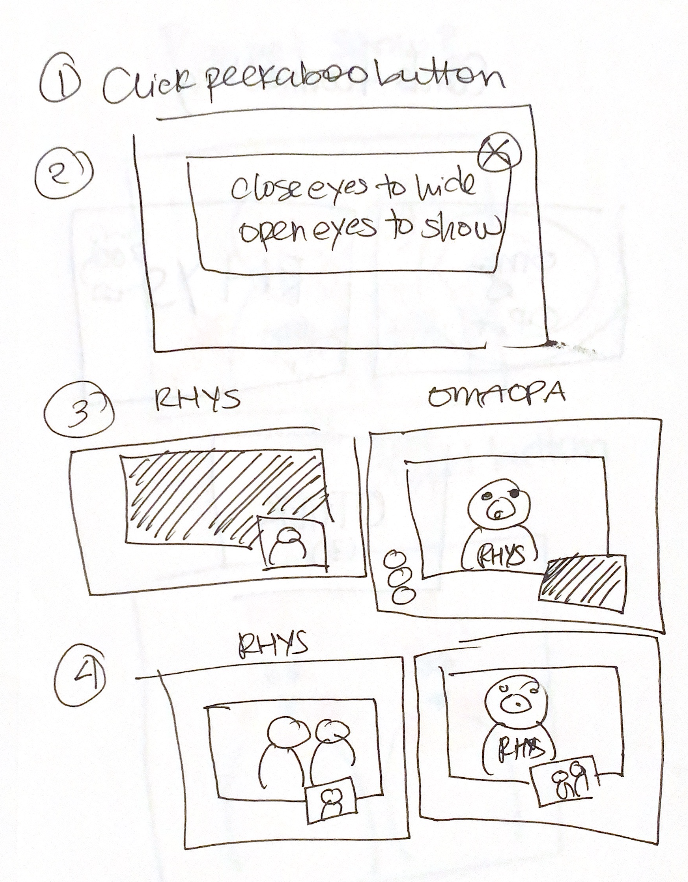 1 Click peekaboo button
2
X
close eyes to hide
open eyes to show
3 RHYS OMAOPA
RHYS
4 RHYS
RHYS